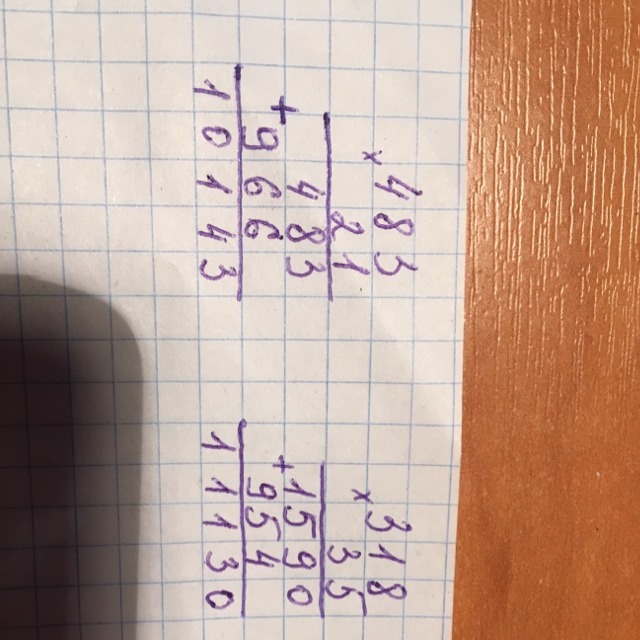 × 483
21
483
+ 966
10143
× 318
35
1590
+ 954
11130